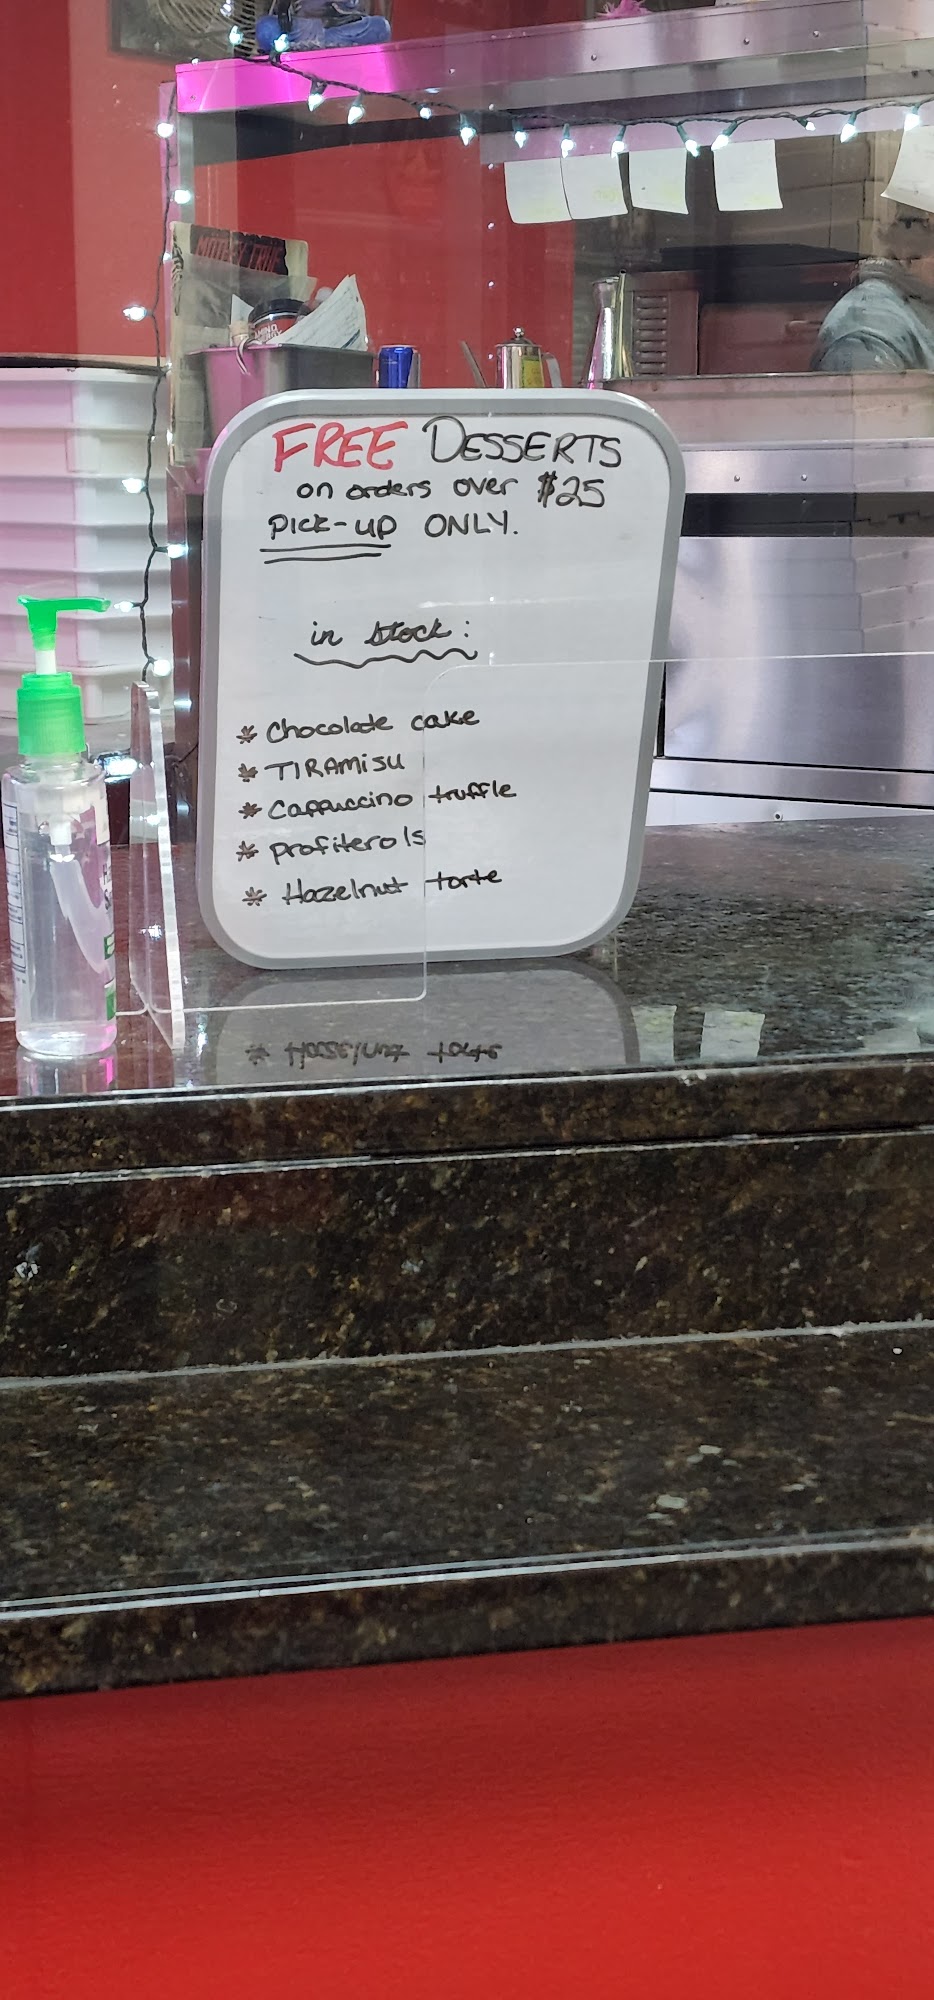 FREE DESSERTS
on orders over $25
PICK-UP ONLY.
in stock:
* Chocolate cake
* TIRAMISU
* Cappuccino truffle
* profiterols
* Hazelnut torte